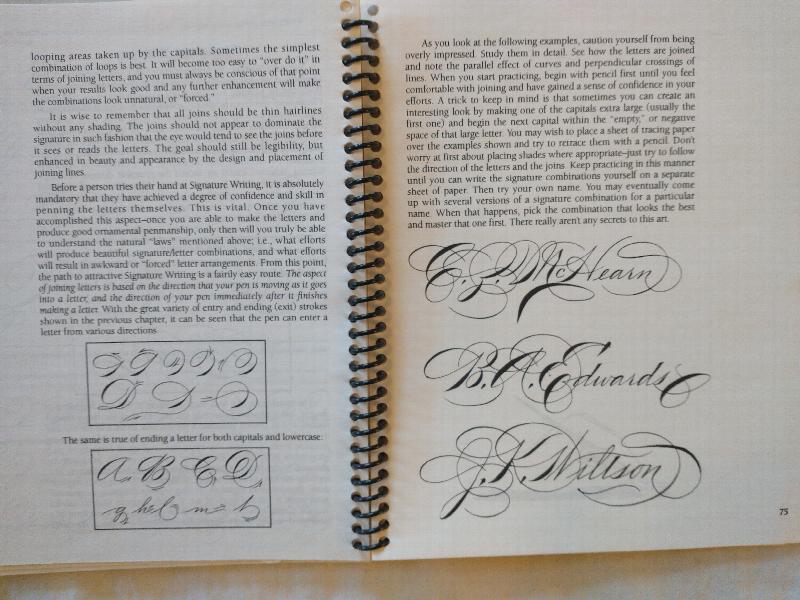 looping areas taken up by the capitals. Sometimes the simplest
combination of loops is best. It will become too easy to "over do it" in
terms of joining letters, and you must always be conscious of that point
when your results look good and any further enhancement will make
the combinations look unnatural, or "forced."
It is wise to remember that all joins should be thin hairlines
without any shading. The joins should not appear to dominate the
signature in such fashion that the eye would tend to see the joins before
it sees or reads the letters. The goal should still be legibility, but
enhanced in beauty and appearance by the design and placement of
joining lines.
Before a person tries their hand at Signature Writing, it is absolutely
mandatory that they have achieved a degree of confidence and skill in
penning the letters themselves. This is vital. Once you have
accomplished this aspect—once you are able to make the letters and
produce good ornamental penmanship, only then will you truly be able
to understand the natural "laws" mentioned above; i.e., what efforts
will produce beautiful signature/letter combinations, and what efforts
will result in awkward or "forced" letter arrangements. From this point,
the path to attractive Signature Writing is a fairly easy route. The aspect
of joining letters is based on the direction that your pen is moving as it goes
into a letter, and the direction of your pen immediately after it finishes
making a letter. With the great variety of entry and ending (exit) strokes
shown in the previous chapter, it can be seen that the pen can enter a
letter from various directions.
The same is true of ending a letter for both capitals and lowercase:
A B C D
As you look at the following examples, caution yourself from being
overly impressed. Study them in detail. See how the letters are joined
and note the parallel effect of curves and perpendicular crossings of
lines. When you start practicing, begin with pencil first until you feel
comfortable with joining and have gained a sense of confidence in your
efforts. A trick to keep in mind is that sometimes you can create an
interesting look by making one of the capitals extra large (usually the
first one) and begin the next capital within the "empty," or negative
space of that large letter. You may wish to place a sheet of tracing paper
over the examples shown and try to retrace them with a pencil. Don't
worry at first about placing shades where appropriate—just try to follow
the direction of the letters and the joins. Keep practicing in this manner
until you can write the signature combinations yourself on a separate
sheet of paper. Then try your own name. You may eventually come
up with several versions of a signature combination for a particular
name. When that happens, pick the combination that looks the best
and master that one first. There really aren't any secrets to this art.
McHearn
B.A. Edwards
J.K. Willson
75